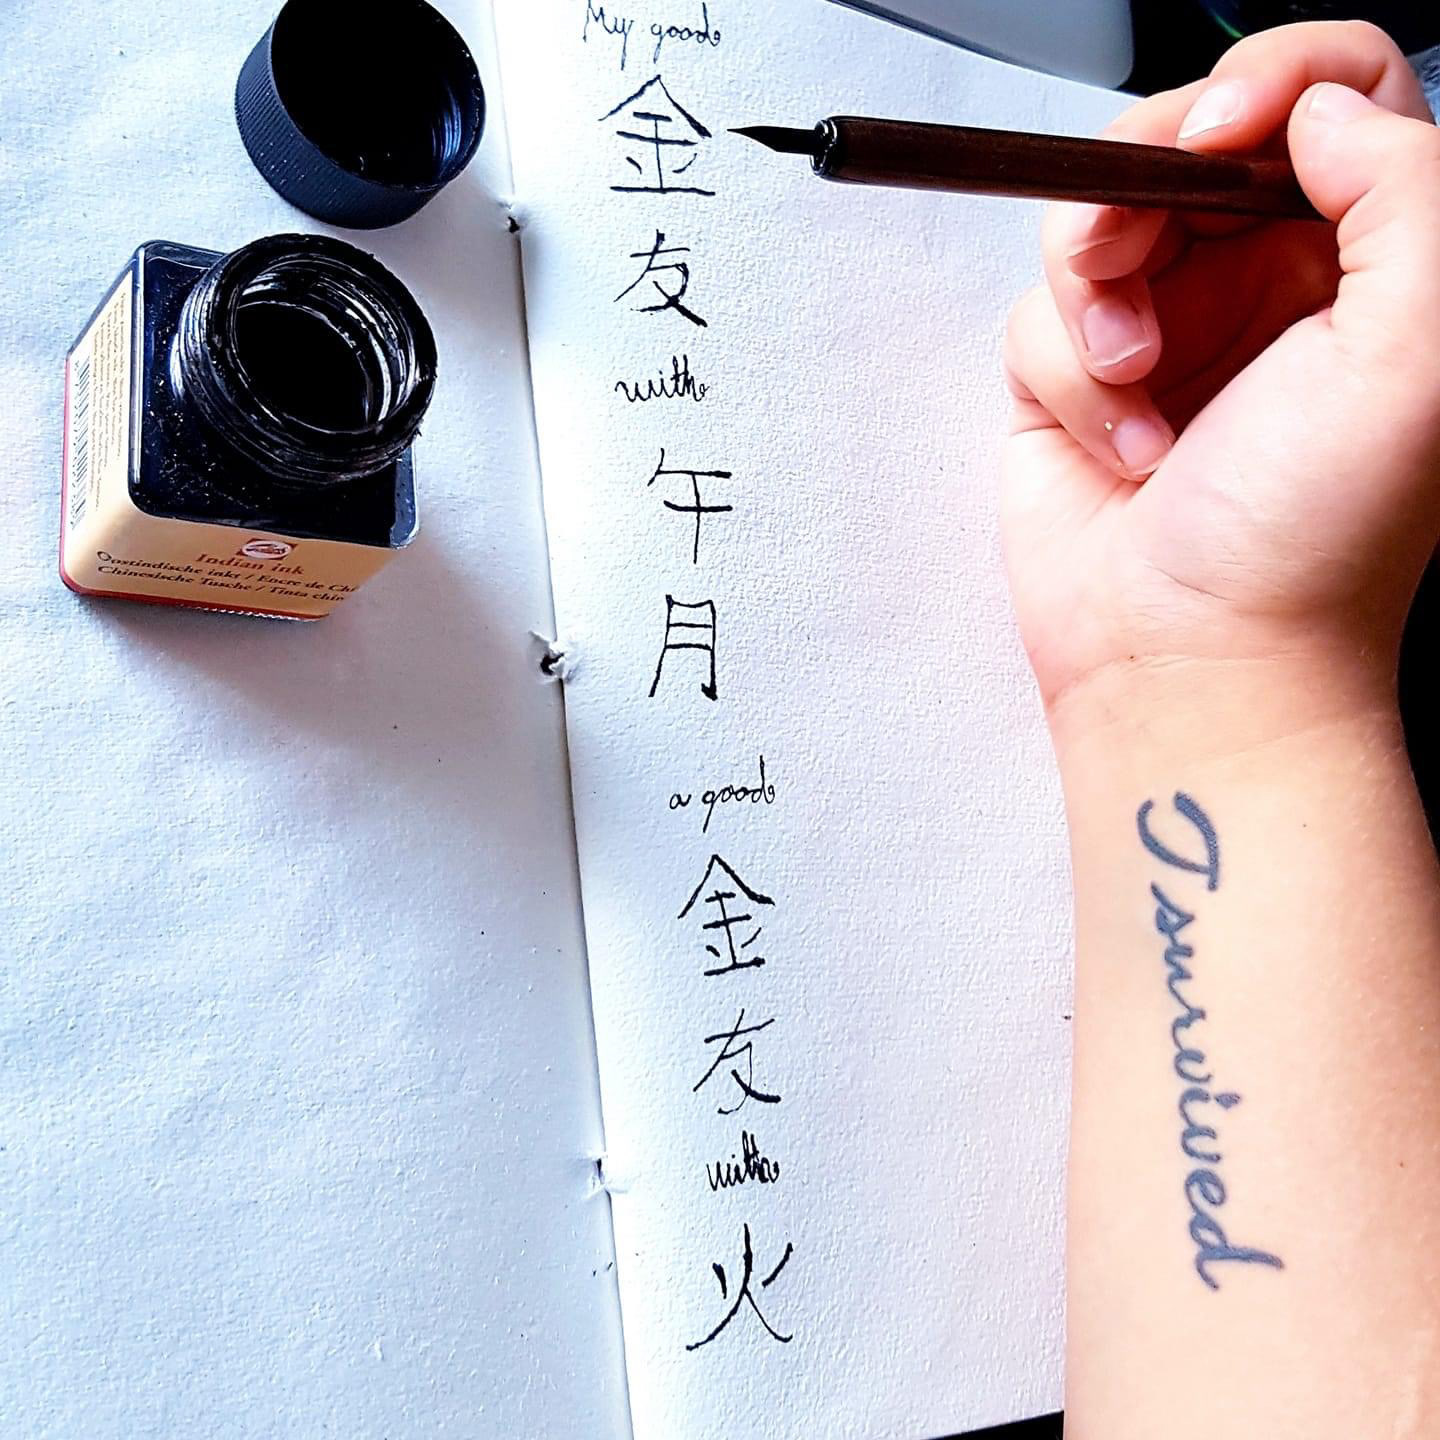 My good
金
友
with
午
月
a good
金
友
with
火
I survived
Indian ink
Oostindische inkt / Encre de Chi
Chinesische Tusche / Tinta chin